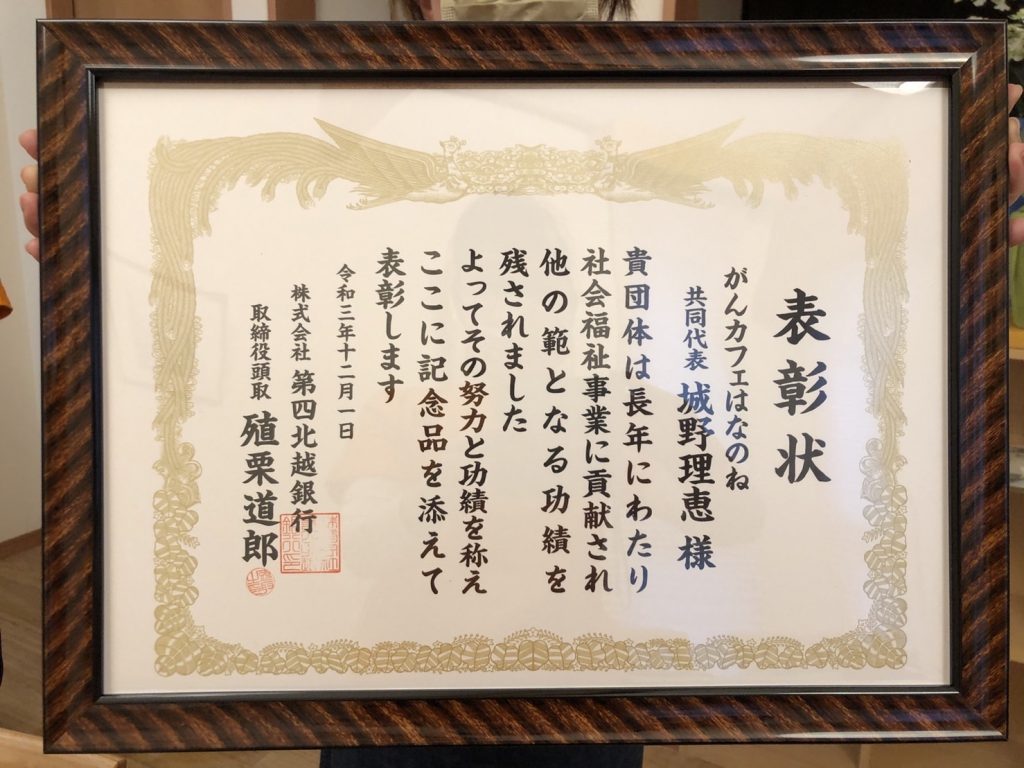 表彰状
がんカフェはなのね
共同代表 城野理恵 様
貴団体は長年にわたり
社会福祉事業に貢献され
他の範となる功績を
残されました
よってその努力と功績を称え
ここに記念品を添えて
表彰します
令和三年十二月一日
株式会社 第四北越銀行
取締役頭取 殖栗道郎